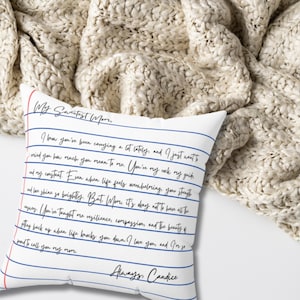 My Sweetest Mom,
I know you've been carrying a lot lately, and I just want to
remind you how much you mean to me. You're my rock, my guide,
and my constant. Even when life feels overwhelming, your strength
and love shine so brightly. But, Mom, it's okay not to have all the
answers. You've taught me resilience, compassion, and the beauty of
getting back up when life knocks you down. I love you, and I'm so
proud to call you my mom.
Always, Candice